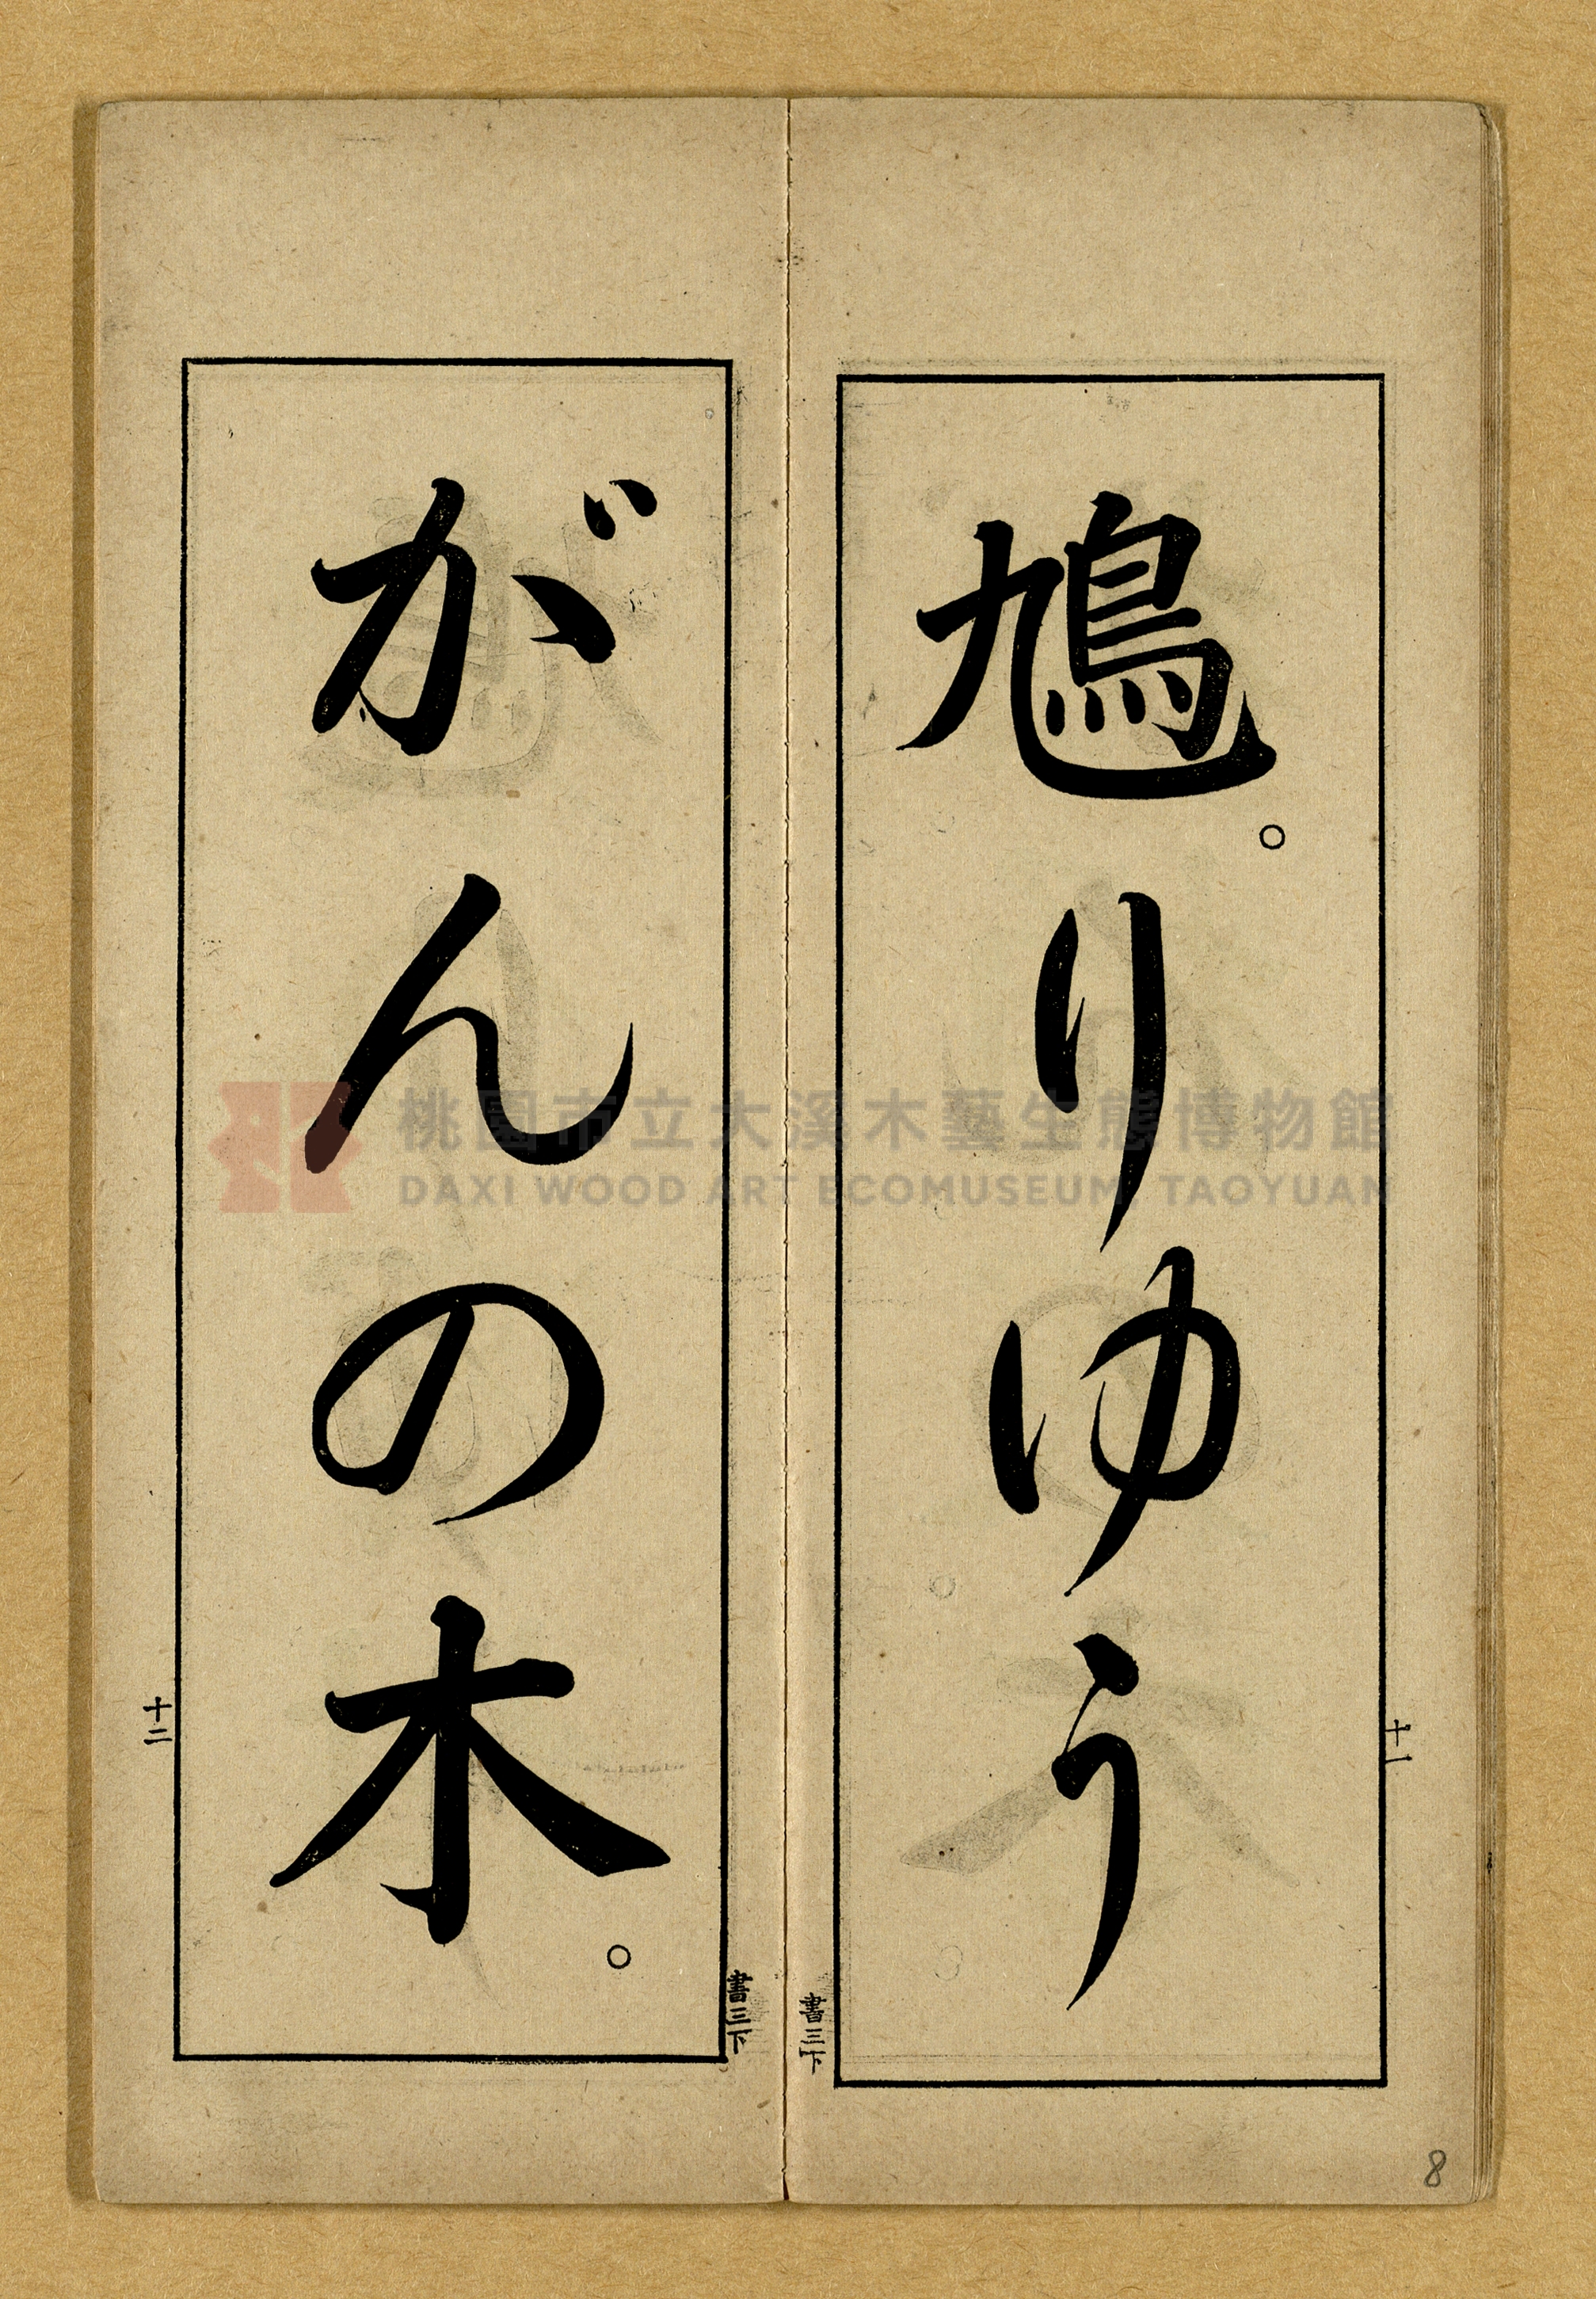 鳩。りゆう
十一
書三下
がんの木。
十二
書三下
8
桃園市立大溪木藝生態博物館
DAXI WOOD ART ECOMUSEUM, TAOYUAN